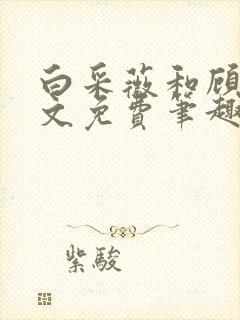 白采薇和顾
文免费笔趣
紫骏